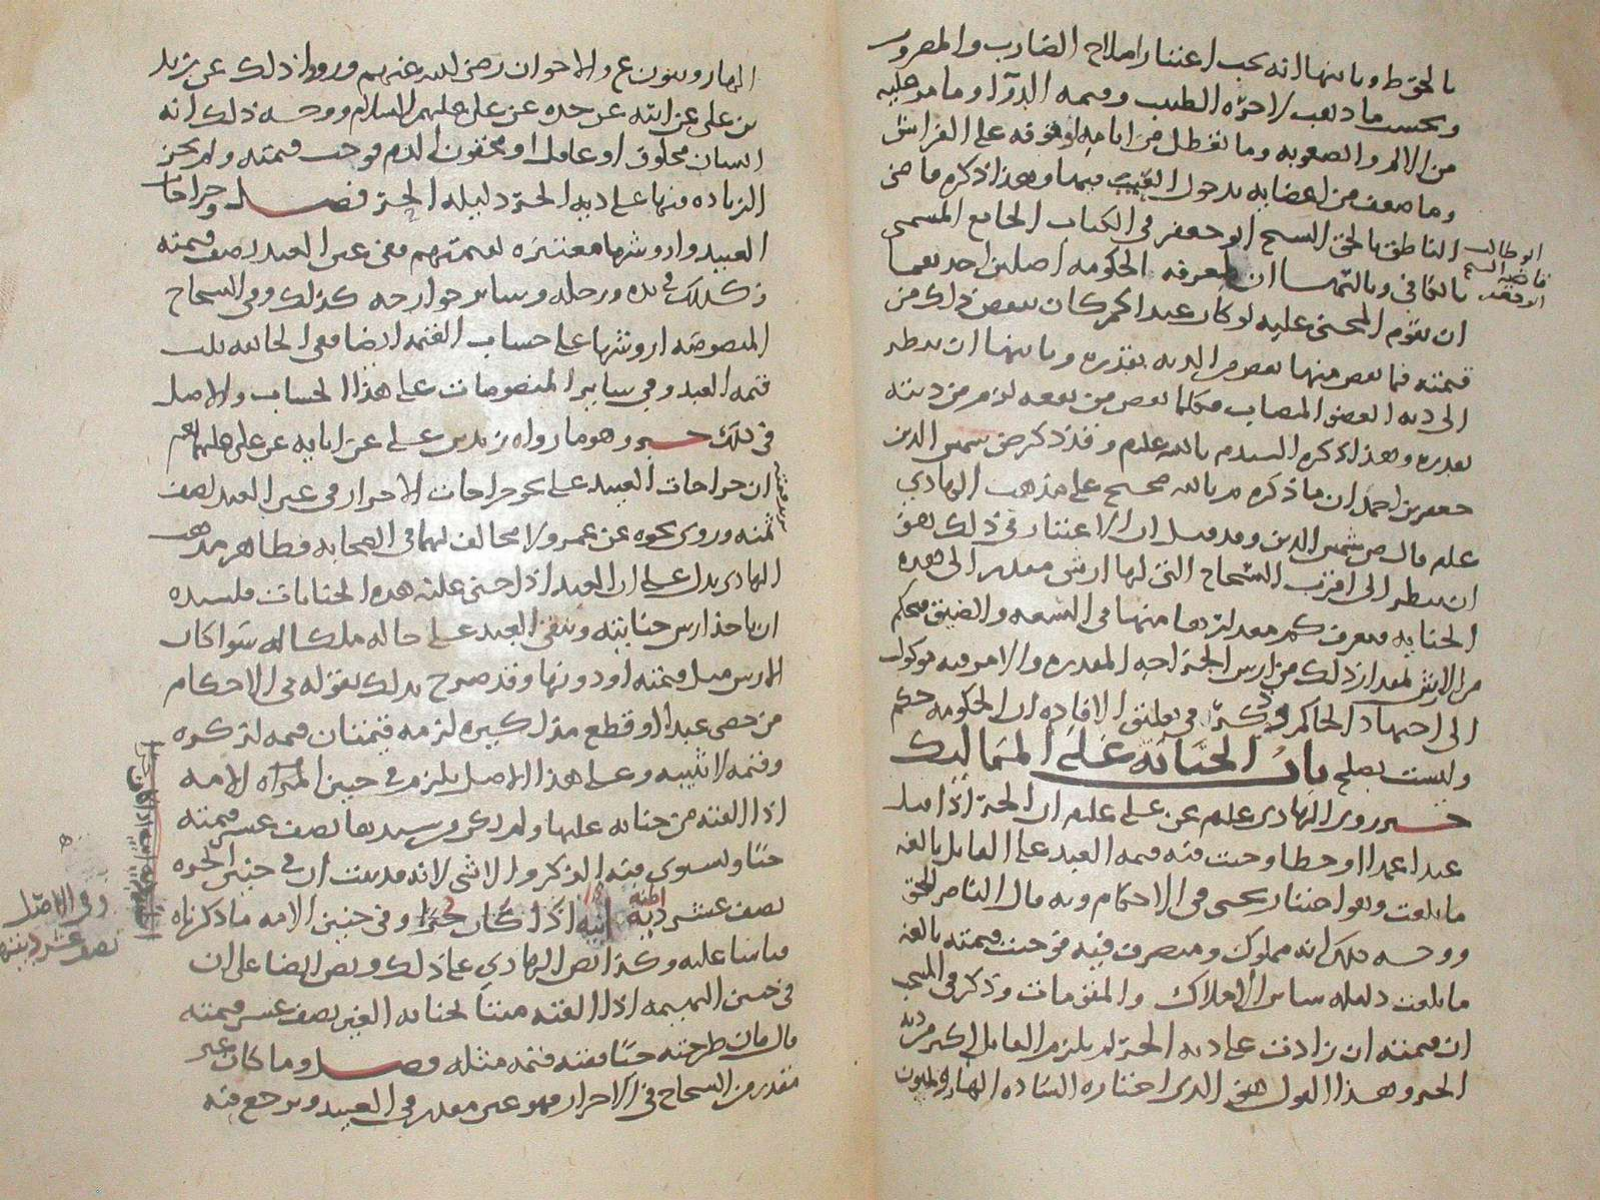 بالحوط وثانيها انه يجب اعتبار اصلاح الضارب والمضروب
ويحسب ما ذهب لاجرة الطبيب وقيمة الدوا وما مر عليه
من الالم والصعوبة وما تعطل من ايامه او على الفراش
وما ضعف من اعضايه بدخول العيب فيها وهذا ذكره قاضي
الناطق بالحق الشيخ ابو جعفر في الكتاب الجامع المسمى
بالكافي وثالثها ان معرفة الحكومة اصلين احدهما
ابو طالب
قاضيه الشيخ
ابو جعفر
ان يقوم المجني عليه لو كان عبدا كم كان ينقص ذلك من
قيمته فما نقص منها نقص من الدية بقدره وثانيها ان ينظر
الى دية العضو المصاب فكلما نقص من نفعه لزم من ديته
بقدره وهذا ذكره السيد م بالله علم وقد ذكر ض شمس الدين
جعفر بن احمد ان ما ذكره م بالله صحيح على مذهب الهادي
علم قال ض شمس الدين وقد قيل ان الاعتبار في ذلك هو
ان ينظر الى اقرب الشجاج التي لها ارش مقدر الى هذه
الجناية فيعرف كم مقدارها منها في السعة والضيق فيحكم
من الارش بمقدار ذلك من ارش الجراحة المقدرة والامر فيه موكول
الى اجتهاد الحاكم وذكر في تعليق الافادة ان الحكومة حكم
وليست بصلح باب الجناية على المماليك
خبر روى الهادي علم عن علي علم ان الحر اذا قتل
عبدا عمدا او خطا وجبت فيه قيمة العبد على القاتل بالغة
ما بلغت وهو اختيار يحيى في الاحكام وبه قال الناصر للحق
ووجه ذلك انه مملوك ومتصرف فيه فوجبت قيمته بالغة
ما بلغت دليله ساير الاملاك والمقومات وذكر في المنتخب
ان قيمته ان زادت على دية الحر لم يلزم القاتل اكثر من دية
الحر وهذا القول هو الذي اختاره السادة الهارونيون
الهارونيون ع والاخوان رضي الله عنهم ورووا ذلك عن زيد
بن علي عن ابيه عن جده عن علي عليهم السلام ووجه ذلك انه
انسان مخلوق او عامل او محقون الدم فوجب قيمته ولم يجز
الزيادة فيها على دية الحر دليله الحر فصل وجراحات
العبيد واروشها معتبرة بقيمتهم ففي عين العبد نصف قيمته
وكذلك في يده ورجله وساير جوارحه كذلك وفي الشجاج
المنصوصة اروشها على حساب القيمة ايضا ففي الجايفة ثلث
قيمة العبد وفي ساير المنصوصات على هذا الحساب والاصل
في ذلك خبر وهو ما رواه زيد بن علي عن ابايه عن علي عليهم السلم
ان جراحات العبيد على نحو جراحات الاحرار في عين العبد نصف
ثمنه وروي نحوه عن عمر ولا مخالف لهما في الصحابة فظاهر مذهب
الهادي يدل على ان العبد اذا جني عليه هذه الجنايات فلسيده
ان ياخذ ارش جنايته ويبقى العبد على حاله ملكا له سواء كان
الارش مثل قيمته او دونها وقد صرح بذلك بقوله في الاحكام
من خصى عبدا او قطع مذاكيره لزمه قيمتان قيمة لذكره
وقيمة لانثييه وعلى هذا الاصل يلزم في جنين المراة الامة
اذا القته من جناية عليها ولم يكن من سيدها نصف عشر قيمته
حيا ويستوي فيه الذكر والانثى لانه قد ثبت ان في جنين الحرة
نصف عشر دية ابيه اذا كان حرا وفي جنين الامة ما ذكرناه
قياسا عليه وكذا نص الهادي على ذلك ونص ايضا على ان
في جنين البهيمة اذا القته ميتا لجناية الغير نصف عشر قيمته
قال فان طرحته حيا ففيه قيمة مثله فصل وما كان غير
مقدر من الشجاج في الاحرار فهو غير مقدر في العبيد ويرجع فيه
وفي الاصل
نصف عشر ديته